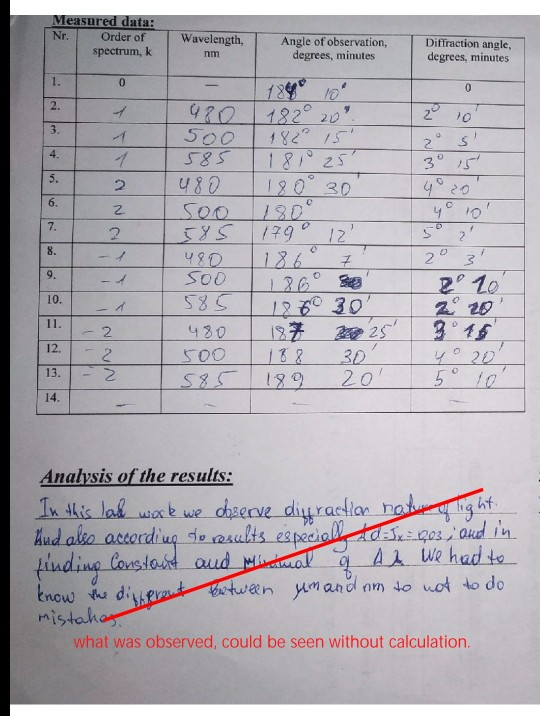 Measured data:
Nr. Order of spectrum, k Wavelength, nm Angle of observation, degrees, minutes Diffraction angle, degrees, minutes
1. 0 — 184° 10' 0
2. 1 480 182° 20' 2° 10'
3. 1 500 182° 15' 2° 5'
4. 1 585 181° 25' 3° 15'
5. 2 480 180° 30' 4° 20'
6. 2 500 180° 4° 10'
7. 2 585 179° 12' 5° 2'
8. -1 480 186° 7' 2° 3'
9. -1 500 186° 2° 10'
10. -1 585 186° 30' 2° 20'
11. -2 480 187 25' 3° 15'
12. -2 500 188 30' 4° 20'
13. -2 585 189 20' 5° 10'
14. — — — —
Analysis of the results:
In this lab work we observe diffraction nature of light.
And also according to results especially = 0,03; and in
finding Constant and Minimal of Δλ We had to
know the different between μm and nm to not to do
mistakes.
what was observed, could be seen without calculation.